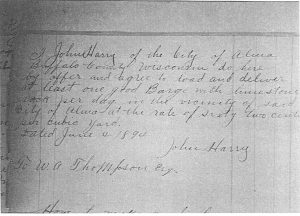 I John Harry of the City of Alma
Buffalo County Wisconsin do here
by offer and agree to load and deliver
at least one good Barge with limestone
rock per day in the vicinity of said
City of Alma at the rate of sixty two cents
per cubic yard.
Dated June 4 1894
John Harry
To W. A. Thompson Esq.